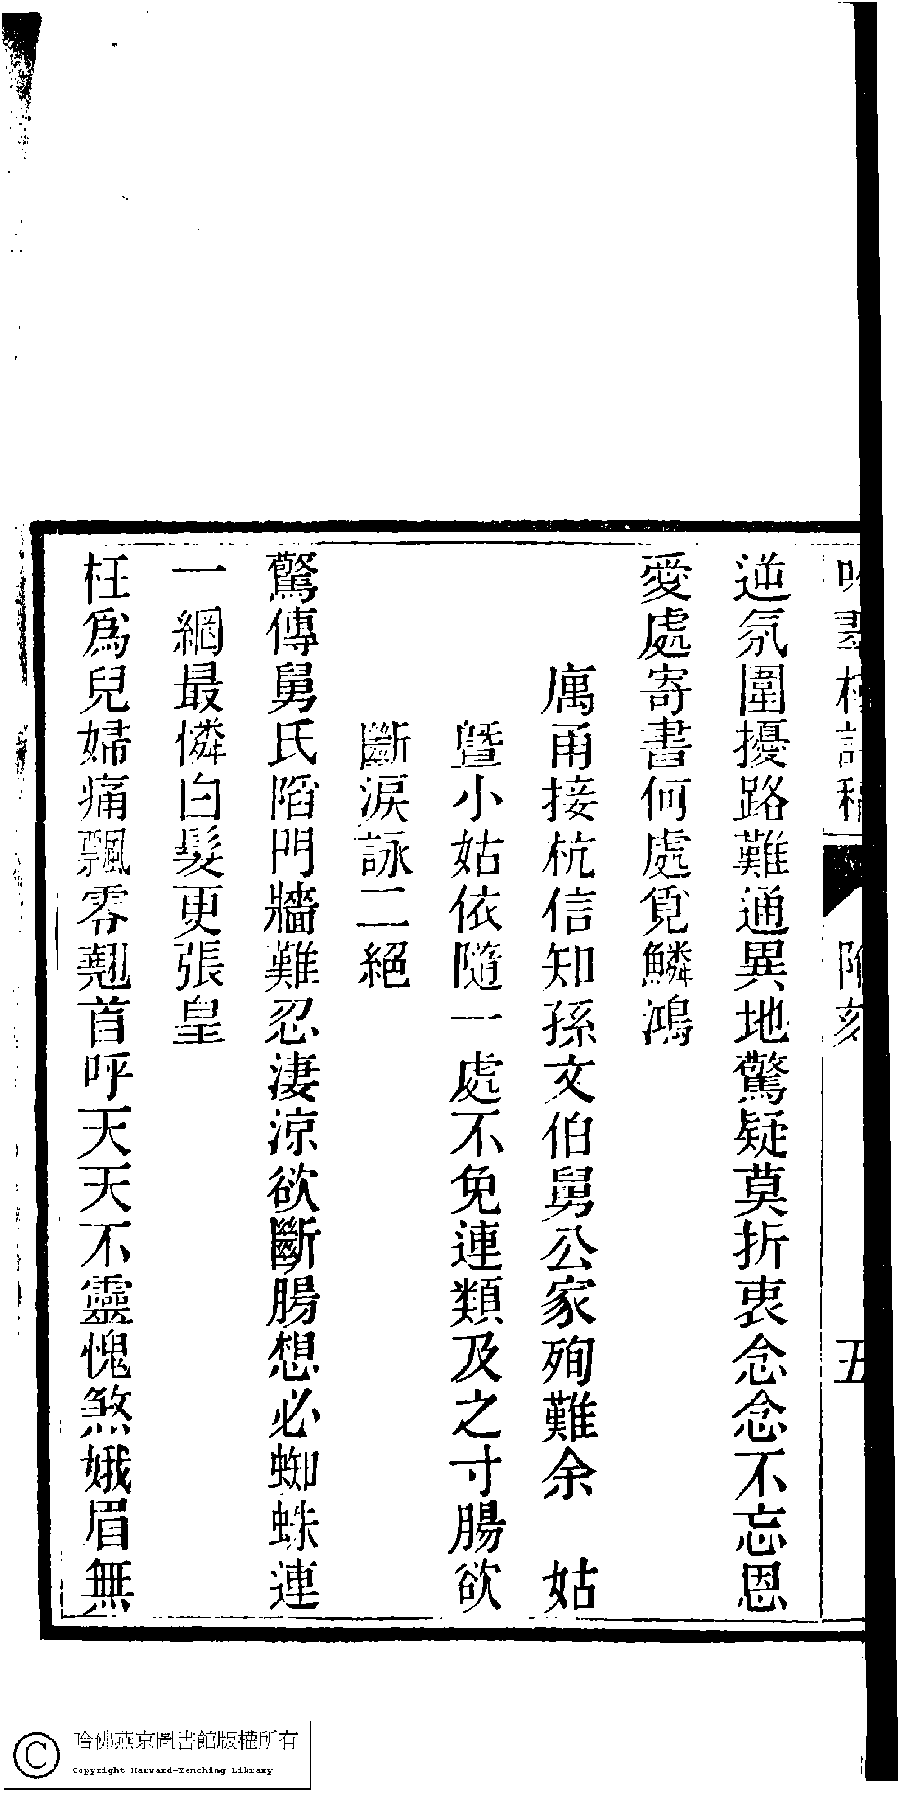 逆氛圍擾路難通異地驚疑莫折衷念念不忘恩
愛處寄書何處覓鱗鴻
寓甬接杭信知孫文伯舅公家殉難余　姑
暨小姑依隨一處不免連類及之寸腸欲
斷淚詠二絕
驚傳舅氏陷門牆難忍淒涼欲斷腸想必蜘蛛連
一網最憐白髮更張皇
枉爲兒婦痛飄零翹首呼天天不靈愧煞娥眉無
哈佛燕京圖書館版權所有
Copyright Harvard-Yenching Library